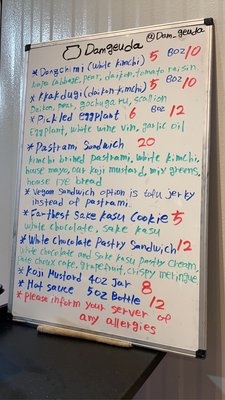 @Dam_geuda
Damgeuda
* Dongchimi (white kimchi) 5 8oz 10
napa cabbage, pear, daikon, tomato, raisin
* Kkakdugi (daikon kimchi) 5 10
Daikon, pear, gochugaru, scallion
* Pickled eggplant 6 8oz 12
Eggplant, white wine vin, garlic oil
* Pastrami Sandwich 20
kimchi brined pastrami, white kimchi,
house mayo, our koji mustard, mix greens,
house rye bread
* Vegan Sandwich option is tofu jerky
instead of pastrami.
* Earthest Sake Kasu Cookie 5
white chocolate, sake kasu
* White Chocolate Pastry Sandwich 12
white chocolate and sake kasu pastry cream,
pate choux cake, grapefruit, crispy meringue
* Koji Mustard 4oz Jar 8
* Hot sauce 5oz Bottle 12
* please inform your server of
any allergies